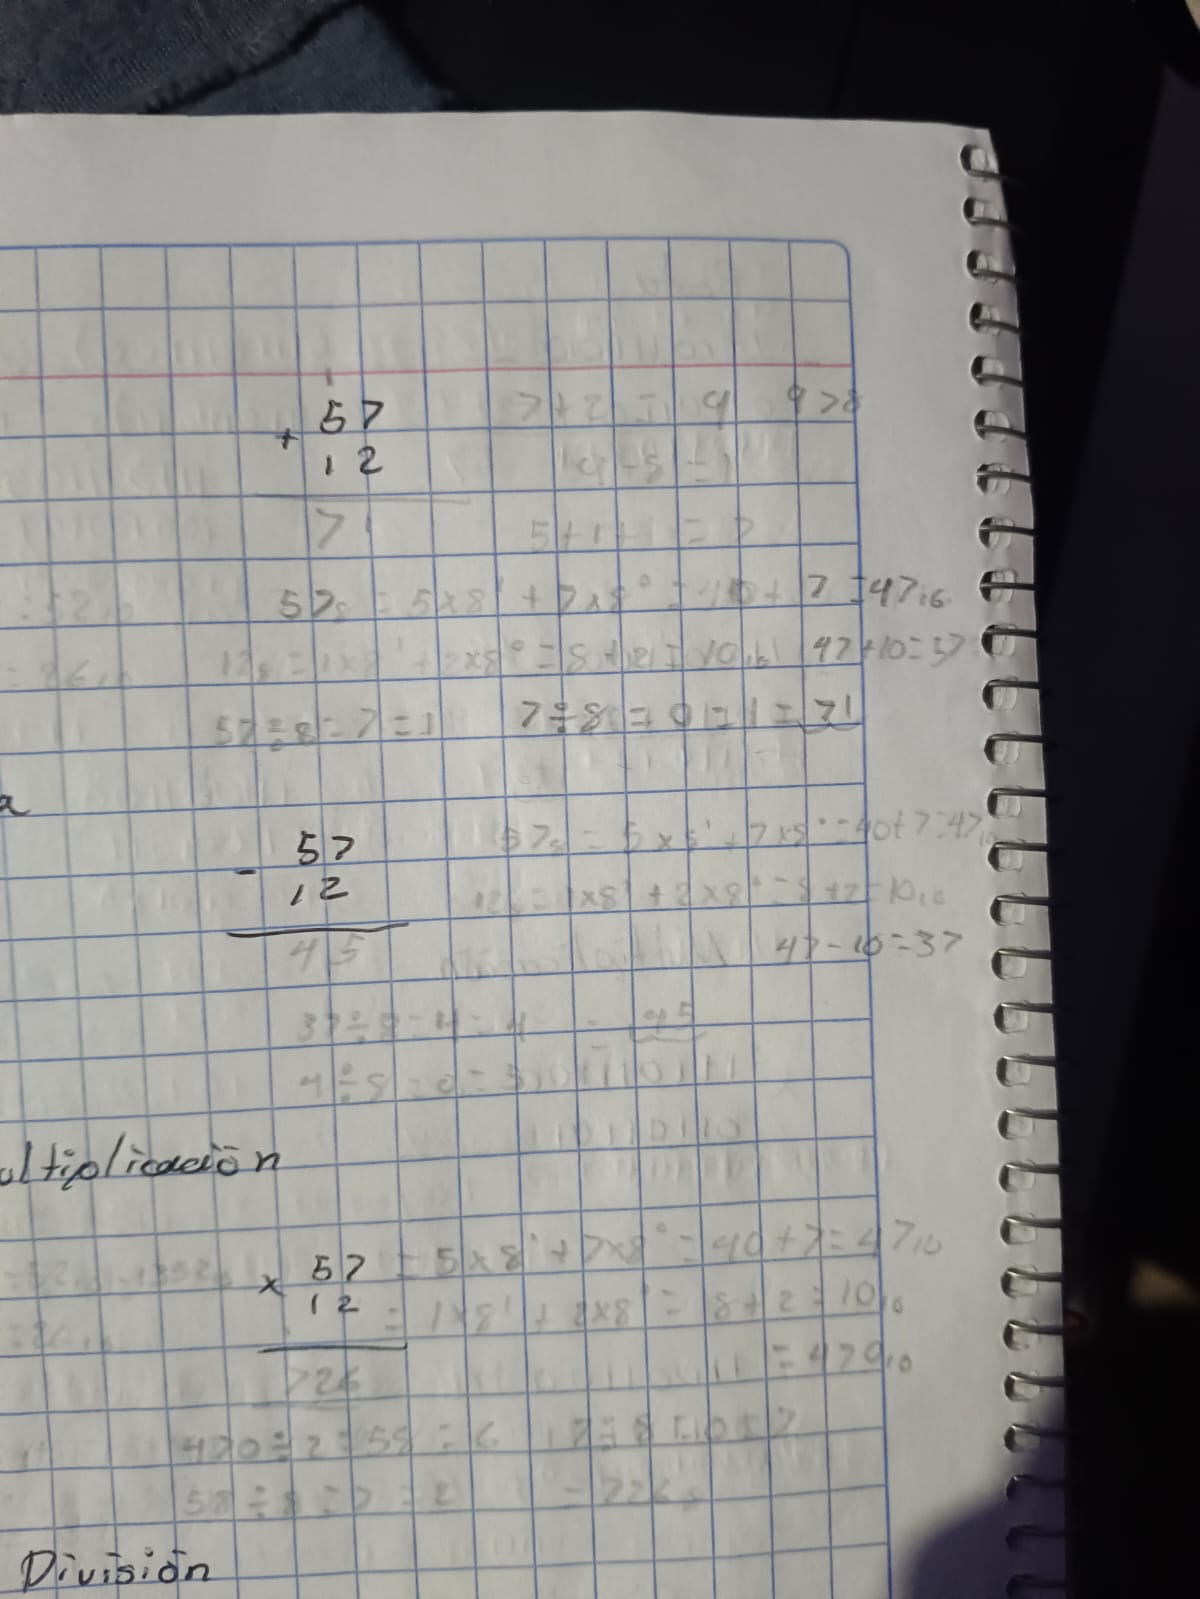 1
57
+ 12
71
7+2 = 9 9>8
9-8=1
5+1+1 = 7
=52₁₀
57₈ = 5x8¹ + 7x8⁰ = 40+ 7 =47₁₀
=26₁₀
12₈ = 1x8¹ + 2x8⁰ = 8+2 = 10₁₀ 47+10=57
57÷8=7=1 7÷8=0=7=71
a
57
- 12
45
57₈ = 5x8¹+7x8⁰=40+7=47₁₀
12₈=1x8¹+2x8⁰=8+2=10₁₀
47-10=37
37÷8=4=4 = 45
4÷8=0=
ultiplicación
57 = 5x8¹+7x8⁰=40+7=47₁₀
x 12 = 1x8¹+2x8⁰=8+2=10₁₀
=470₁₀
726
470÷2=58=6 17÷8=0=7
58÷8=7=2 =726₈
División